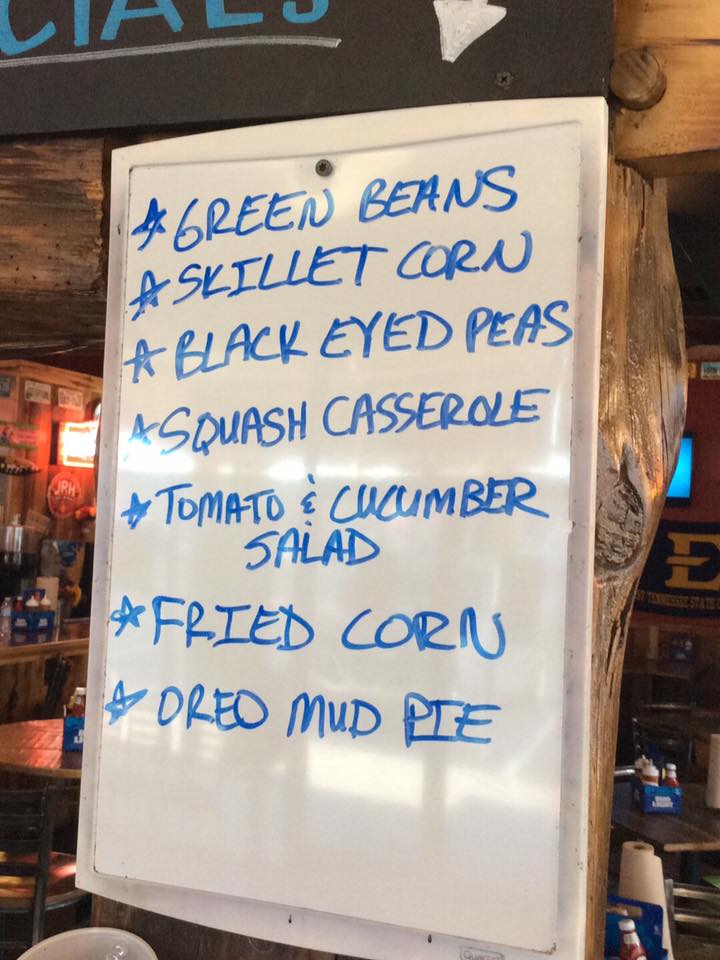 CIALS
☆ GREEN BEANS
☆ SKILLET CORN
☆ BLACK EYED PEAS
☆ SQUASH CASSEROLE
☆ TOMATO & CUCUMBER
SALAD
☆ FRIED CORN
☆ OREO MUD PIE
JRH
E
TENNESSEE STATE
BUD
LIGHT